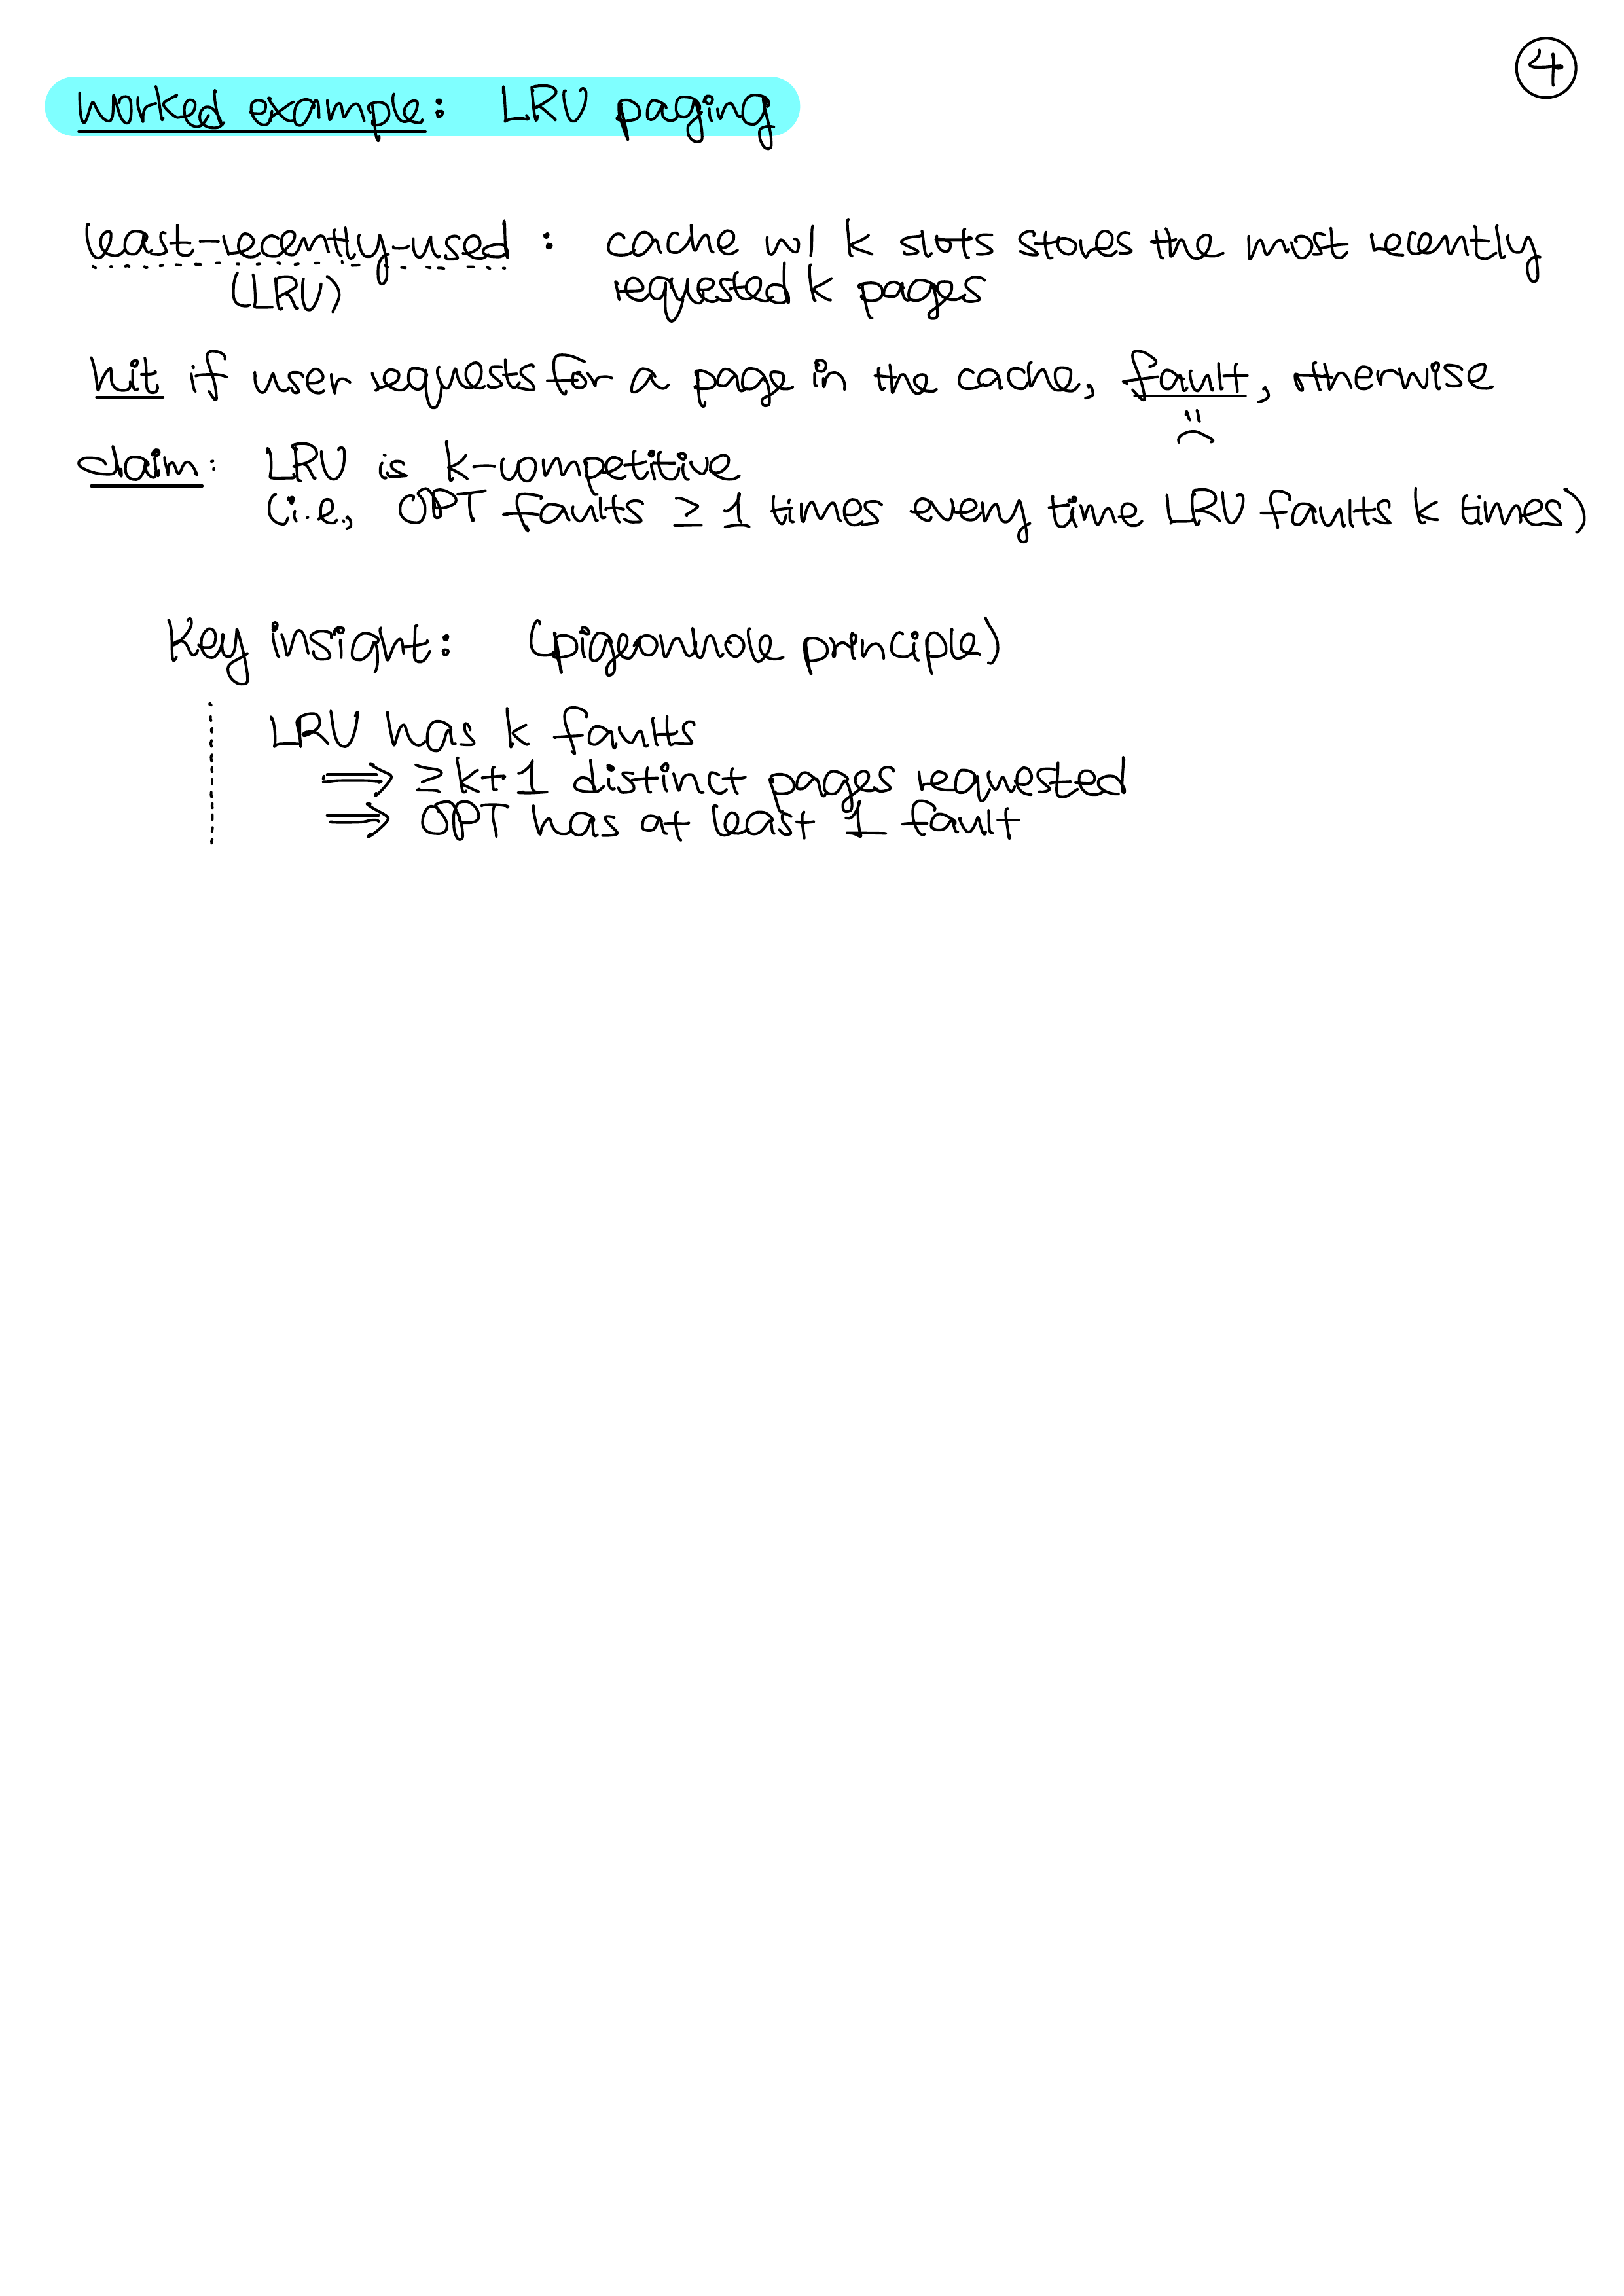 ④
Worked example: LRU paging
least-recently-used : cache w/ k slots stores the most recently
(LRU) requested k pages
hit if user requests for a page in the cache, fault, otherwise
claim: LRU is k-competitive
(i.e., OPT faults ≥ 1 times every time LRU faults k times)
Key insight: (pigeonhole principle)
LRU has k faults
⟹ ≥ k+1 distinct pages requested
⟹ OPT has at least 1 fault